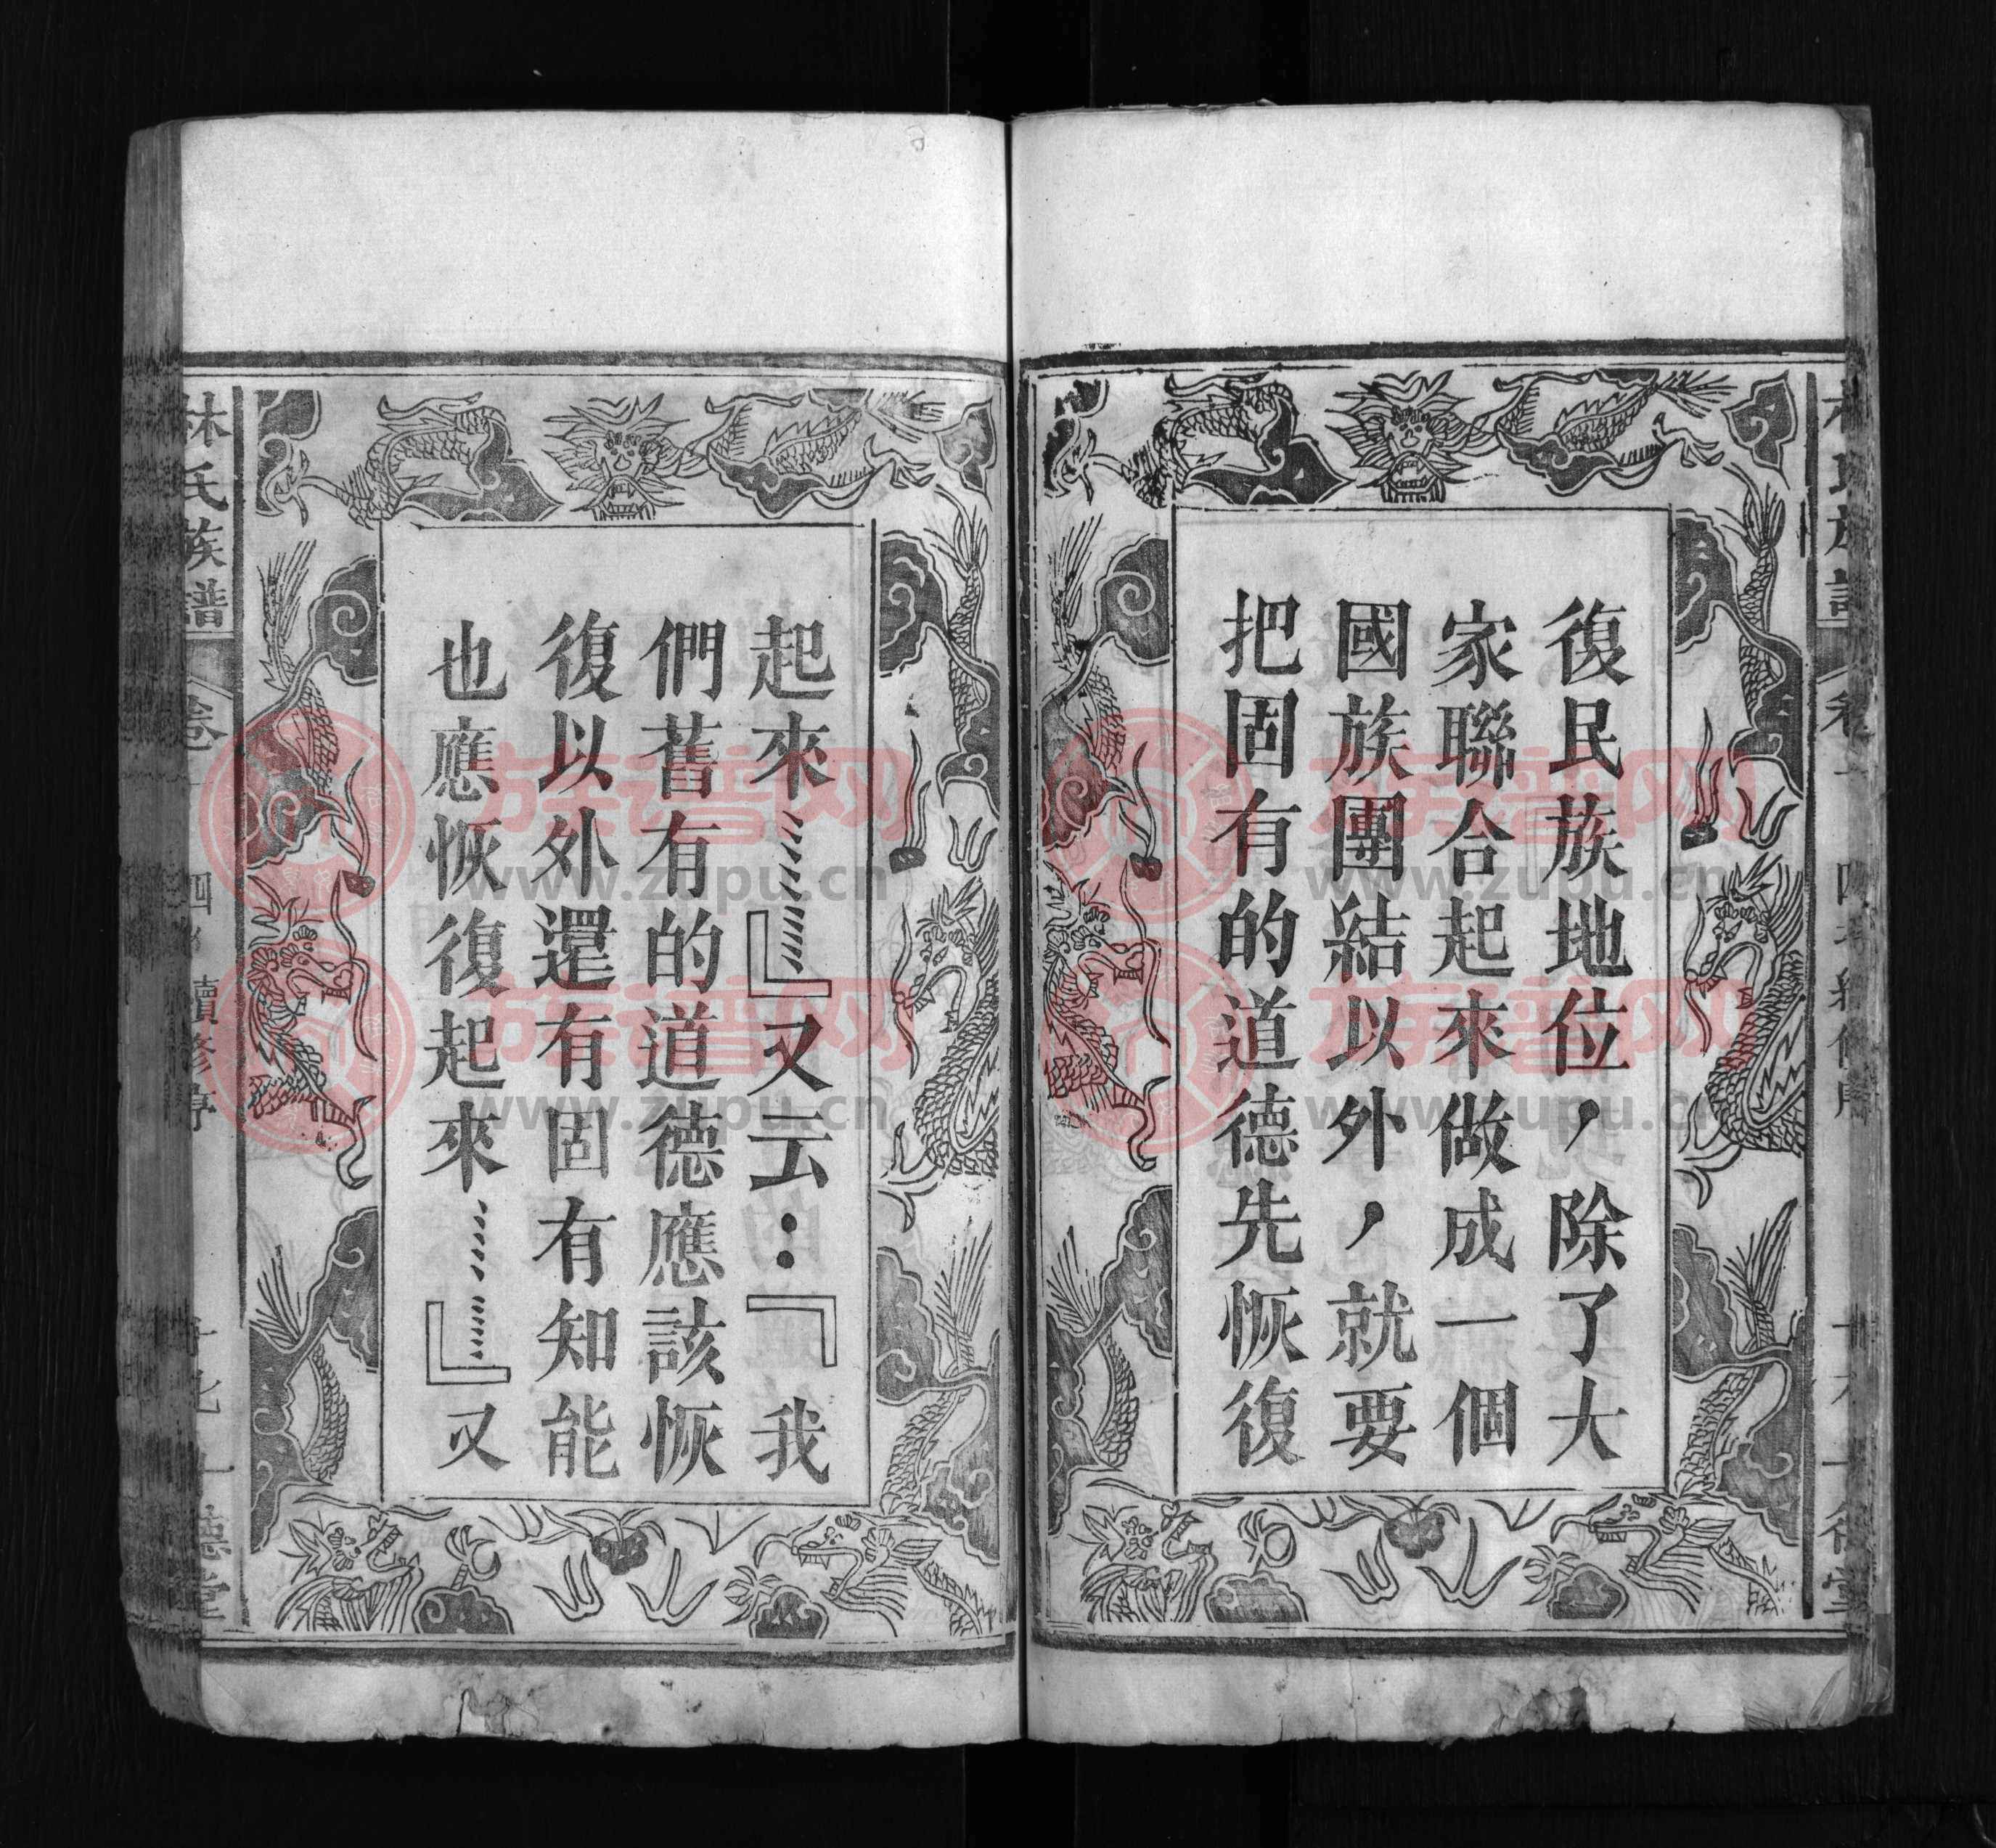 復民蔟地位，除了大
家聯合起來做成一個
國族團結以外，就要
把固有的道德先恢復
起來……』又云：『我
們舊有的道德應該恢
復以外還有固有知能
也應恢復起來……』又
林氏蔟譜
卷
四
續修
德堂
族谱网
www.zupu.cn
族谱网
www.zupu.cn
族谱网
www.zupu.cn
族谱网
www.zupu.cn